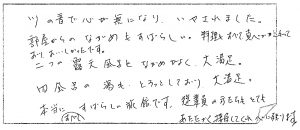 川の音で心が無になり、いやされました。
部屋からのながめもすばらしい。料理もすべて真心がこもって
おりおいしかったです。
二つの露天風呂もながめがよく、大満足。
内風呂の湯も、とろっとしており大満足。
本当にすばらしい旅館です。従業員の方たちもとても
あたたかく接客してくれ